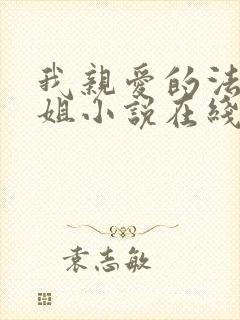 我親愛的法
姐小說在綫
袁志敏